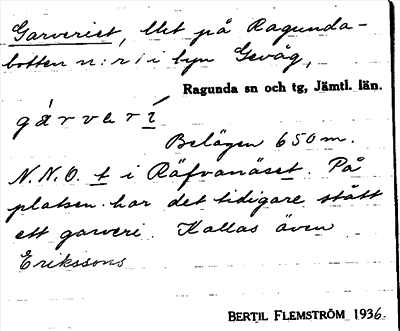 Garveriet, llet på Ragunda-
botten n:r 1 i byn Gevåg,
Ragunda sn och tg, Jämtl. län.
gárverí
Belägen 650 m.
N.N.O. t i Räfvanäset. På
platsen har det tidigare stått
ett garveri. Kallas även
Erikssons
BERTIL FLEMSTRÖM 1936.